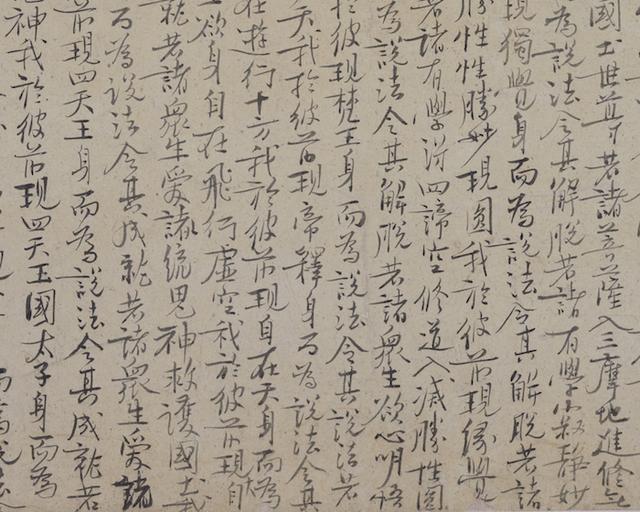 國土世尊若諸菩薩入三摩地進修無
為說法令其解脫若諸有學寂靜妙
現獨覺身而為說法令其解脫若諸
勝性性勝妙現圓我於彼前現緣覺
若諸有學得四諦空修道入滅勝性圓
為說法令其解脫若諸眾生欲心明悟
於彼現梵王身而為說法令其說法若
天我於彼前現帝釋身而為說法令其
在遊行十方我於彼前現自在天身而為
欲身自在飛行虛空我於彼前現自
就若諸眾生愛諸統鬼神救護國土我
而為說法令其成就若諸眾生愛諸
前現四天王身而為說法令其成就若
神我於彼前現四天王國太子身而為